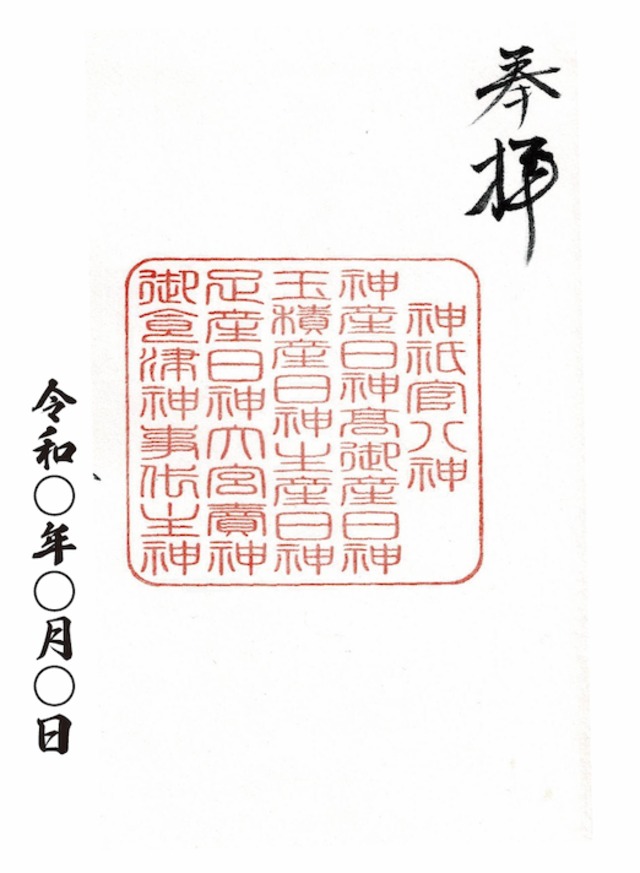 奉拝
神祇官八神
神産日神高御産日神
玉積産日神生産日神
足産日神大宮売神
御食津神事代主神
令和〇年〇月〇日